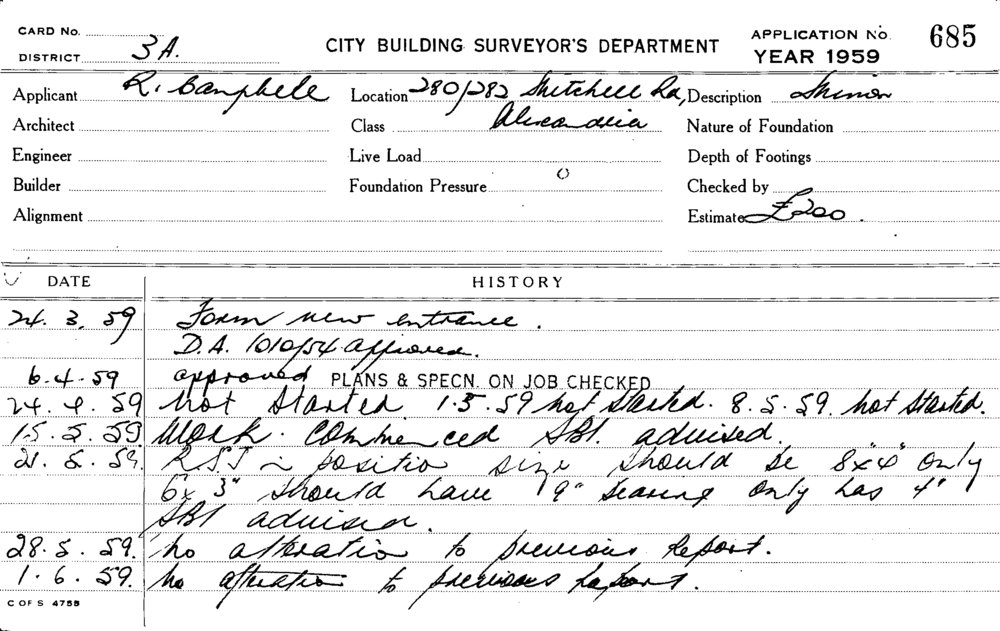 CARD No. 3A. CITY BUILDING SURVEYOR'S DEPARTMENT APPLICATION No. 685
DISTRICT YEAR 1959
Applicant R. Campbell Location 280/282 Mitchell Rd, Description Minor
Architect Class Alexandria Nature of Foundation
Engineer Live Load Depth of Footings
Builder Foundation Pressure Checked by
Alignment Estimate £200.
DATE HISTORY
24. 3. 59 Form new entrance.
D.A. 1010/54 approved.
6-4-59 approved PLANS & SPECN. ON JOB CHECKED
24. 4. 59 not started. 1.5.59 not started. 8.5.59. not started.
15. 5. 59. Work commenced SBI. advised.
21. 5. 59. R.S.J in position size should be 8"x4" only
6x3" should have 9" bearing only has 4"
SBI advised.
28. 5. 59. no alteration to previous report.
1. 6. 59. no alteration to previous report.
C OF S 4755